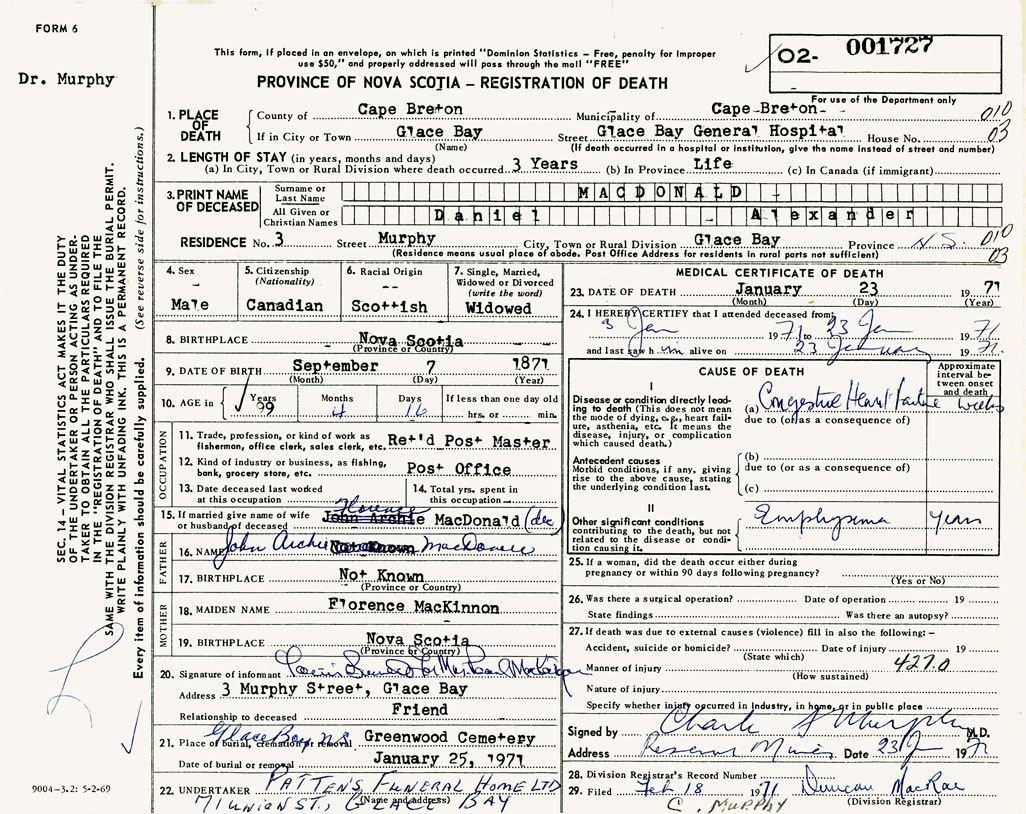 FORM 6
Dr. Murphy
This form, if placed in an envelope, on which is printed "Dominion Statistics – Free, penalty for improper
use $50," and properly addressed will pass through the mail "FREE"
PROVINCE OF NOVA SCOTIA – REGISTRATION OF DEATH
O2- 001727
For use of the Department only
1. PLACE OF DEATH
County of Cape Breton Municipality of Cape Breton 010
If in City or Town Glace Bay Street Glace Bay General Hospital House No. 03
(Name) (If death occurred in a hospital or institution, give the name instead of street and number)
2. LENGTH OF STAY (in years, months and days)
(a) In City, Town or Rural Division where death occurred 3 Years (b) In Province Life (c) In Canada (if immigrant)
3. PRINT NAME OF DECEASED
Surname or Last Name MACDONALD
All Given or Christian Names Daniel Alexander
RESIDENCE No. 3 Street Murphy City, Town or Rural Division Glace Bay Province N.S. 010
(Residence means usual place of abode. Post Office Address for residents in rural parts not sufficient) 03
4. Sex
Male
5. Citizenship
(Nationality)
Canadian
6. Racial Origin
Scottish
7. Single, Married,
Widowed or Divorced
(write the word)
Widowed
8. BIRTHPLACE Nova Scotia
(Province or Country)
9. DATE OF BIRTH September 7 1871
(Month) (Day) (Year)
10. AGE in Years Months Days If less than one day old
99 4 16 hrs. or min.
OCCUPATION
11. Trade, profession, or kind of work as
fisherman, office clerk, sales clerk, etc. Ret'd Post Master
12. Kind of industry or business, as fishing,
bank, grocery store, etc. Post Office
13. Date deceased last worked
at this occupation
14. Total yrs. spent in
this occupation
15. If married give name of wife
or husband of deceased Florence John Archie MacDonald (dec)
FATHER
16. NAME John Archie Not Known MacDonald
17. BIRTHPLACE Not Known
(Province or Country)
MOTHER
18. MAIDEN NAME Florence MacKinnon
19. BIRTHPLACE Nova Scotia
(Province or Country)
20. Signature of informant
Address 3 Murphy Street, Glace Bay
Relationship to deceased Friend
21. Place of burial, cremation or removal Glace Bay N.S. Greenwood Cemetery
Date of burial or removal January 25, 1971
22. UNDERTAKER PATTEN'S FUNERAL HOME LTD
(Name and address)
71 UNION ST., GLACE BAY
MEDICAL CERTIFICATE OF DEATH
23. DATE OF DEATH January 23 1971
(Month) (Day) (Year)
24. I HEREBY CERTIFY that I attended deceased from
3 Jan 1971 23 Jan 1971
and last saw him alive on 23 January 1971.
CAUSE OF DEATH
Approximate
interval be-
tween onset
and death
I
Disease or condition directly lead-
ing to death (This does not
mean the mode of dying, e.g., heart fail-
ure, asthenia, etc. It means the
disease, injury, or complication
which caused death.)
(a) Congestive Heart Failure weeks
due to (or as a consequence of)
Antecedent causes
Morbid conditions, if any, giving
rise to the above cause, stating
the underlying condition last.
(b)
due to (or as a consequence of)
(c)
II
Other significant conditions
contributing to the death, but not
related to the disease or condi-
tion causing it.
Emphysema years
25. If a woman, did the death occur either during
pregnancy or within 90 days following pregnancy?
(Yes or No)
26. Was there a surgical operation? Date of operation 19
State findings Was there an autopsy?
27. If death was due to external causes (violence) fill in also the following: –
Accident, suicide or homicide? Date of injury 19
(State which)
Manner of injury 427.0
(How sustained)
Nature of injury
Specify whether injury occurred in industry, in home, or in public place
Signed by Charles Murphy M.D.
Address Reserve Mines Date 23 Jan 1971
28. Division Registrar's Record Number
29. Filed Feb 18 1971 Duncan MacRae
(Division Registrar)
C. MURPHY
SEC. 14 – VITAL STATISTICS ACT MAKES IT THE DUTY
OF THE UNDERTAKER OR PERSON ACTING AS UNDER-
TAKER TO OBTAIN ALL THE PARTICULARS REQUIRED
IN THE "REGISTRATION OF DEATH" AND TO FILE THE
SAME WITH THE DIVISION REGISTRAR WHO SHALL ISSUE THE BURIAL PERMIT.
WRITE PLAINLY WITH UNFADING INK. THIS IS A PERMANENT RECORD.
Every item of information should be carefully supplied. (See reverse side for instructions.)
9004-3.2: 5-2-69